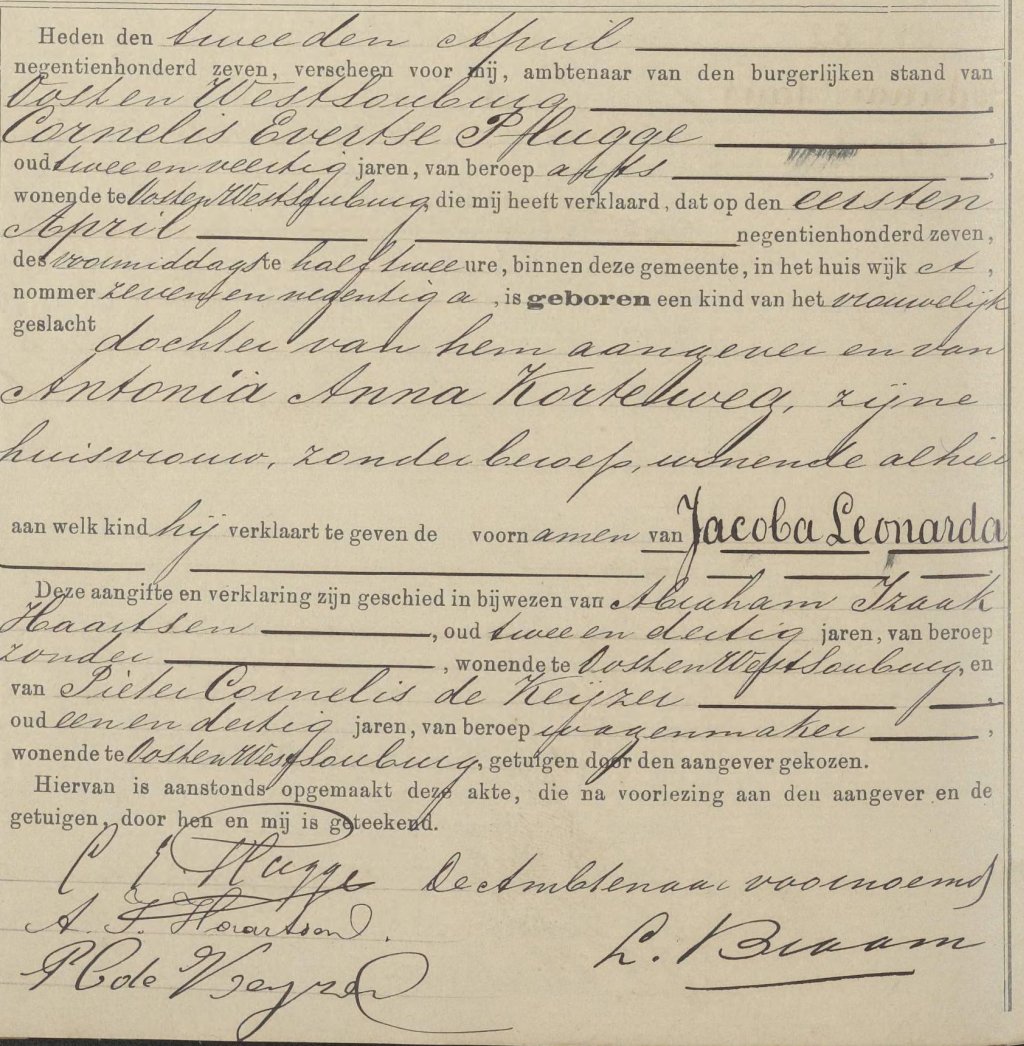 Heden den tweeden April
negentienhonderd zeven, verscheen voor mij, ambtenaar van den burgerlijken stand van
Oost en West Souburg
Cornelis Evertse Pflugge
oud twee en veertig jaren, van beroep arts
wonende te Oost en West Souburg, die mij heeft verklaard, dat op den eersten
April negentienhonderd zeven,
des voormiddags te half twee ure, binnen deze gemeente, in het huis wijk A,
nommer zeven en negentig a, is geboren een kind van het vrouwelijk
geslacht dochter van hem aangever en van
Antonia Anna Korteweg, zijne
huisvrouw, zonder beroep, wonende alhier
aan welk kind hij verklaart te geven de voornamen van Jacoba Leonarda
Deze aangifte en verklaring zijn geschied in bijwezen van Abraham Izaak
Haartsen, oud twee en dertig jaren, van beroep
zonder, wonende te Oost en West Souburg, en
van Pieter Cornelis de Keijzer
oud een en dertig jaren, van beroep wagenmaker,
wonende te Oost en West Souburg, getuigen door den aangever gekozen.
Hiervan is aanstonds opgemaakt deze akte, die na voorlezing aan den aangever en de
getuigen, door hen en mij is geteekend.
C E Pflugge
De Ambtenaar voornoemd
A. I. Haartsen.
L. Braam
P C de Keyzer